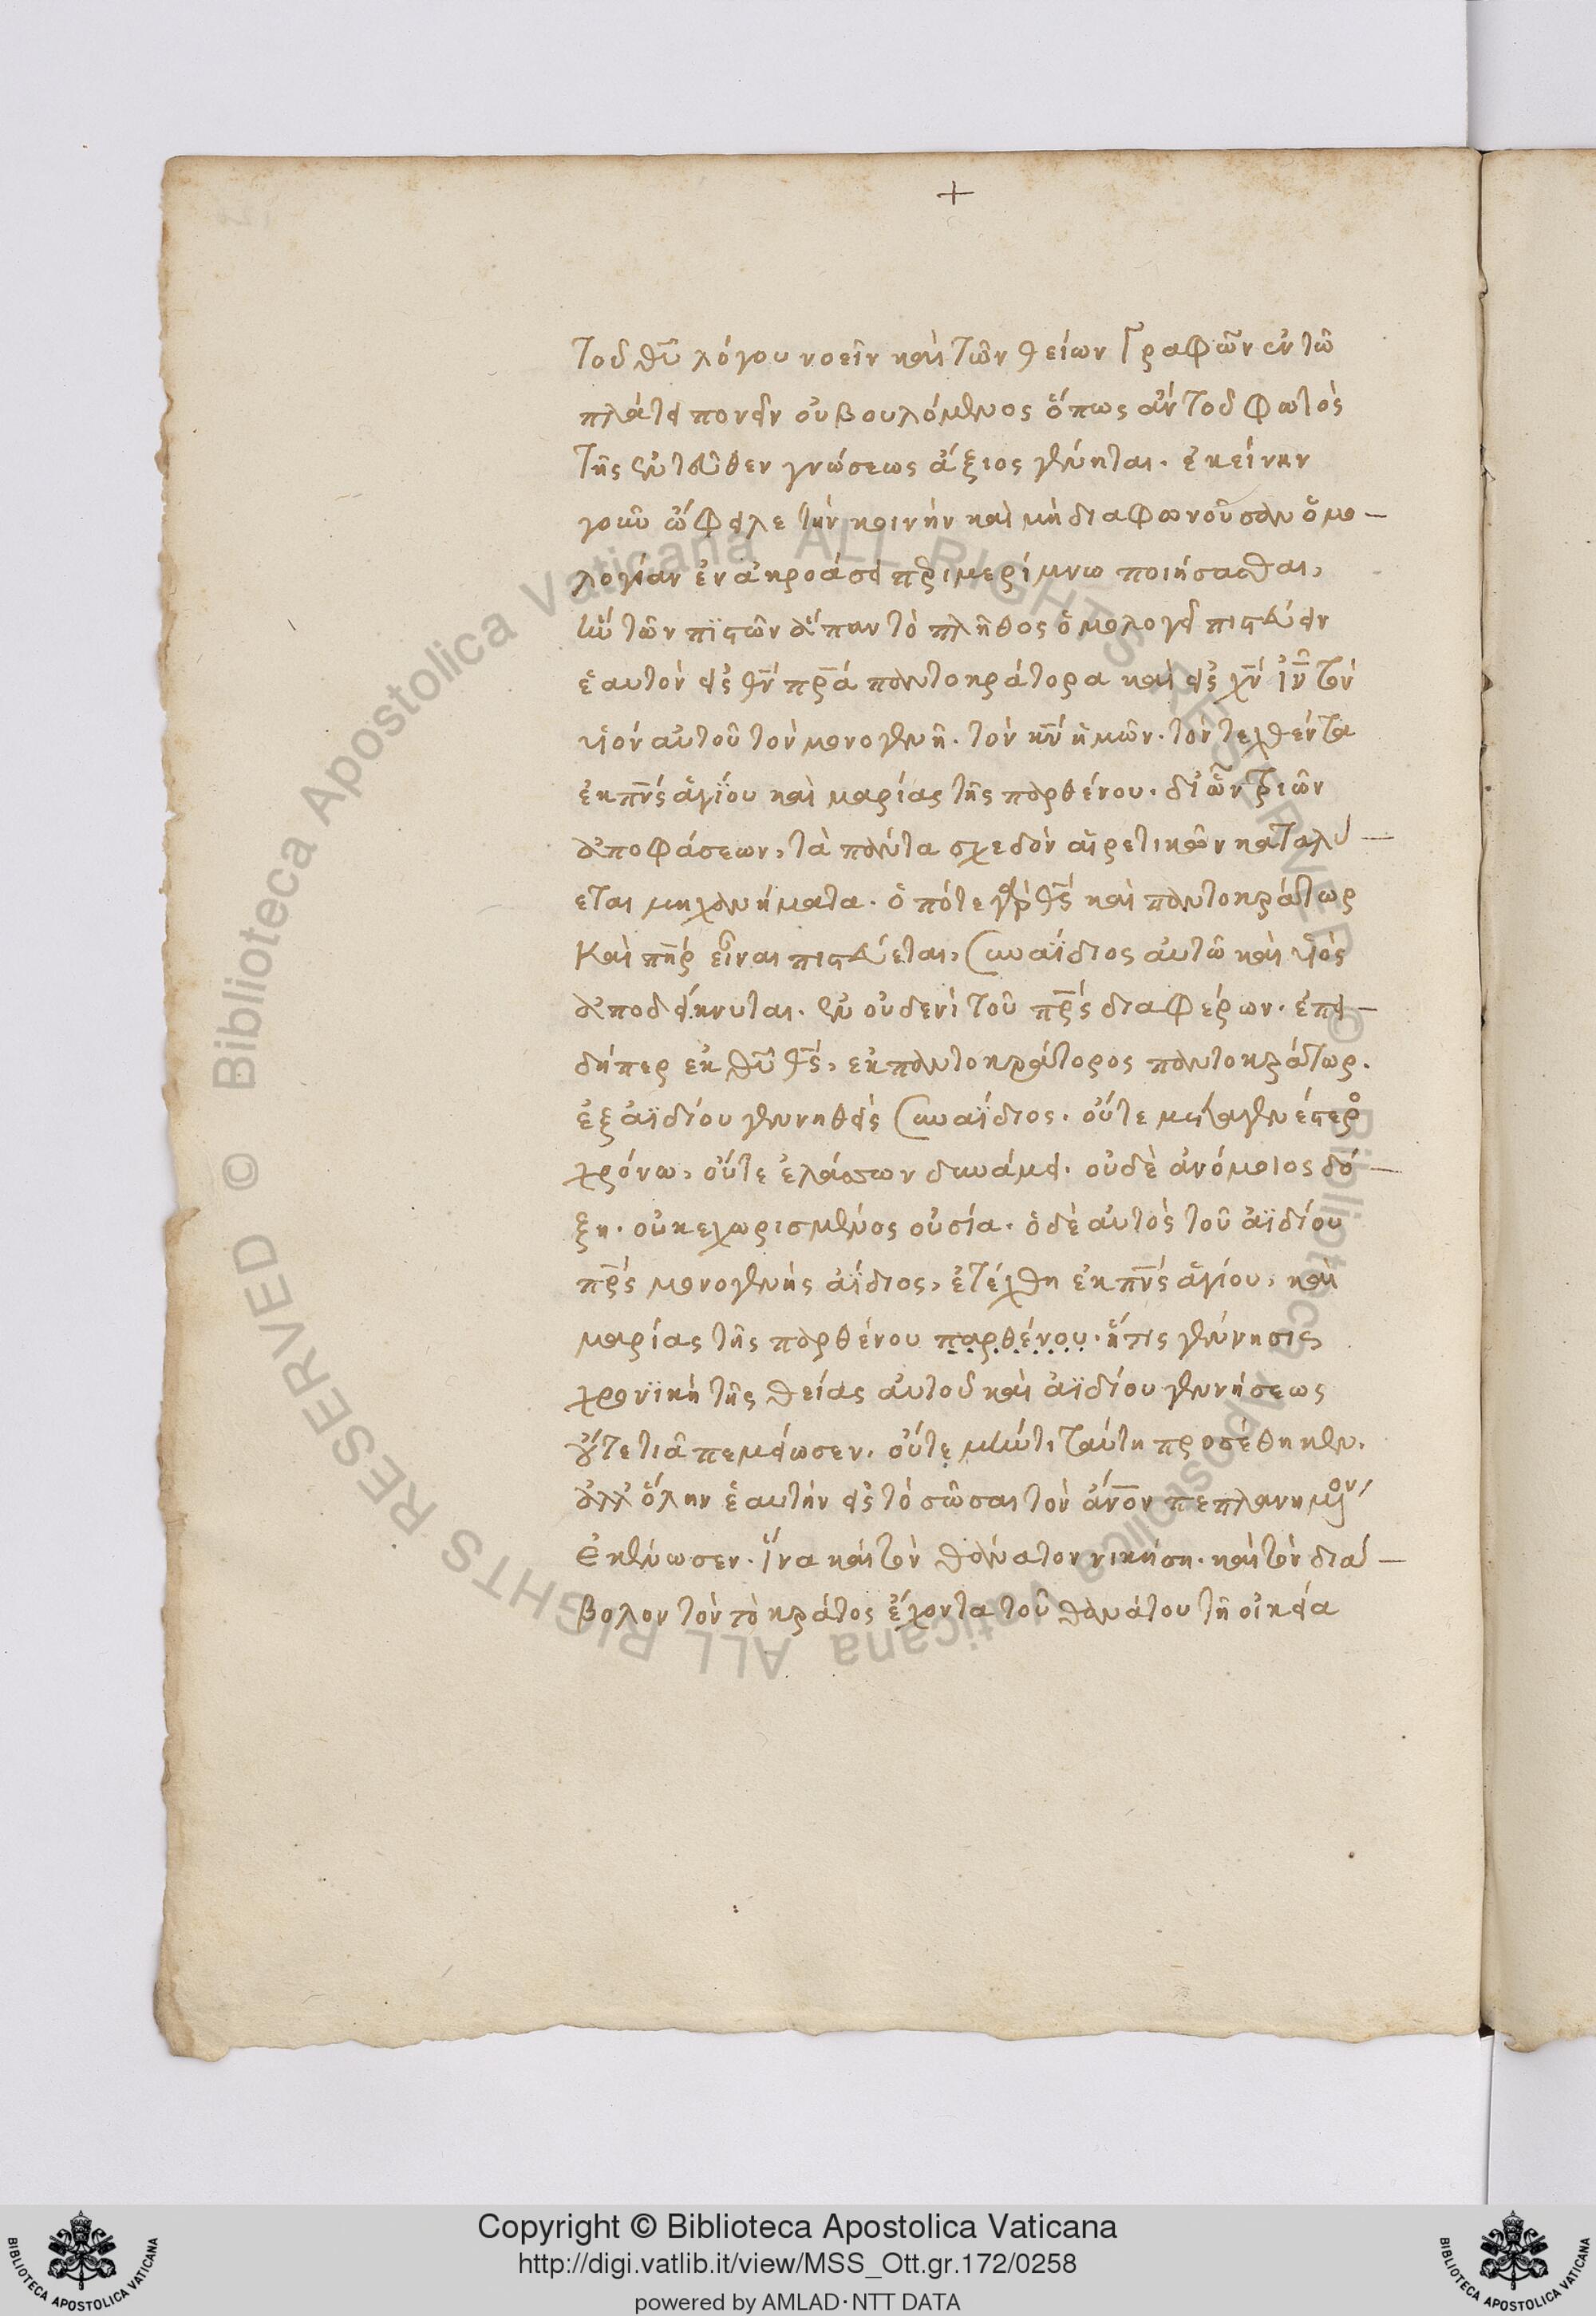 +
τοῦ θῦ λόγου νοεῖν καὶ τῶν θείων Γραφῶν ἐν τῶ
πλάτει πονεῖν οὐ βουλόμενος ὅπως ἂν τοῦ φωτὸς
τῆς ἐντεῦθεν γνώσεως ἄξιος γένηται. ἐκείνην
γοῦν ὤφειλε τὴν κοινὴν καὶ μὴ διαφωνοῦσαν ὁμο–
λογίαν ἐν ἀκροάσει περιμερίμνω ποιήσασθαι,
ἣν τῶν πϊστῶν ἅπαν τὸ πλῆθος ὁμολογεῖ πιστεύειν
ἑαυτὸν εἰς θν̄ πρ̄α παντοκράτορα καὶ εἰς χν̄ ἰν̄ τὸν
υἱὸν αὐτοῦ τὸν μονογενῆ. τὸν κν̄ ἡμῶν. τὸν τεχθέντα
ἐκ πν̄ς ἁγΐου καὶ μαρίας τῆς παρθένου. δι' ὧν τριῶν
ἀποφάσεων, τὰ πάντα σχεδὸν αἱρετικῶν καταλύ–
εται μηχανήματα. ὁπότε γὰρ θς̄ καὶ παντοκράτωρ
Καὶ πη̄ρ εἶναι πιστεύεται, συναΐδιος αὐτῶ καὶ υἱὸς
ἀποδείκνυται. ἐν οὐδενὶ τοῦ πρ̄ς διαφέρων. ἐπει–
δήπερ ἐκ θῦ θς̄, ἐκ παντοκράτορος παντοκράτωρ.
ἐξ ἀϊδίου γεννηθεὶς συναΐδιος. οὔτε μεταγενέστερος
χρόνω, οὔτε ἐλάσσων δυνάμει. οὐδὲ ἀνόμοιος δό–
ξη. οὐ κεχωρισμένος οὐσία. ὁ δὲ αὐτὸς τοῦ ἀϊδίου
πρ̄ς μονογενὴς ἀΐδιος, ἐτέχθη ἐκ πν̄ς ἁγίου, καὶ
μαρίας τῆς παρθένου παρθένου. ἥτις γέννησις
χρονϊκὴ τῆς θείας αὐτοῦ καὶ ἀϊδίου γεννήσεως
οὔτε τι ἀπεμείωσεν. οὔτε μὴν τι ταύτη προσέθηκεν.
ἀλλ' ὅλην ἑαυτὴν εἰς τὸ σῶσαι τὸν ἄν̄ον πεπλανημένον
Ἐκένωσεν. ἵνα καὶ τὸν θάνατον νικήση. καὶ τὸν διά–
βολον τὸν τὸ κράτος ἔχοντα τοῦ θανάτου τῆ οἰκεία
© Biblioteca Apostolica Vaticana ALL RIGHTS RESERVED
© Biblioteca Apostolica Vaticana ALL RIGHTS RESERVED
Copyright © Biblioteca Apostolica Vaticana
http://digi.vatlib.it/view/MSS_Ott.gr.172/0258
powered by AMLAD·NTT DATA
BIBLIOTECA APOSTOLICA VATICANA
BIBLIOTECA APOSTOLICA VATICANA